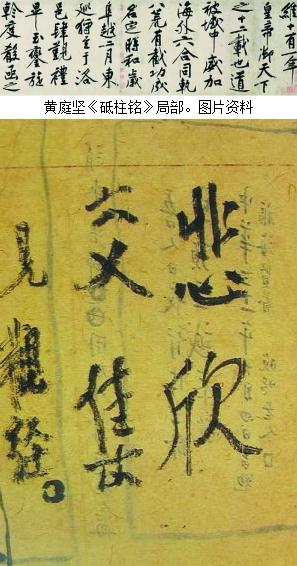 維十有一年
皇帝御天下
之十二載也道
被域中威加
海外六合同軌
八荒有截功成
名定時和歲
阜越二月東
巡狩至于洛
邑肆覲禮
畢玉鑾旋
軫度殽函之
黄庭坚《砥柱铭》局部。图片资料
悲欣
交集
見觀經。